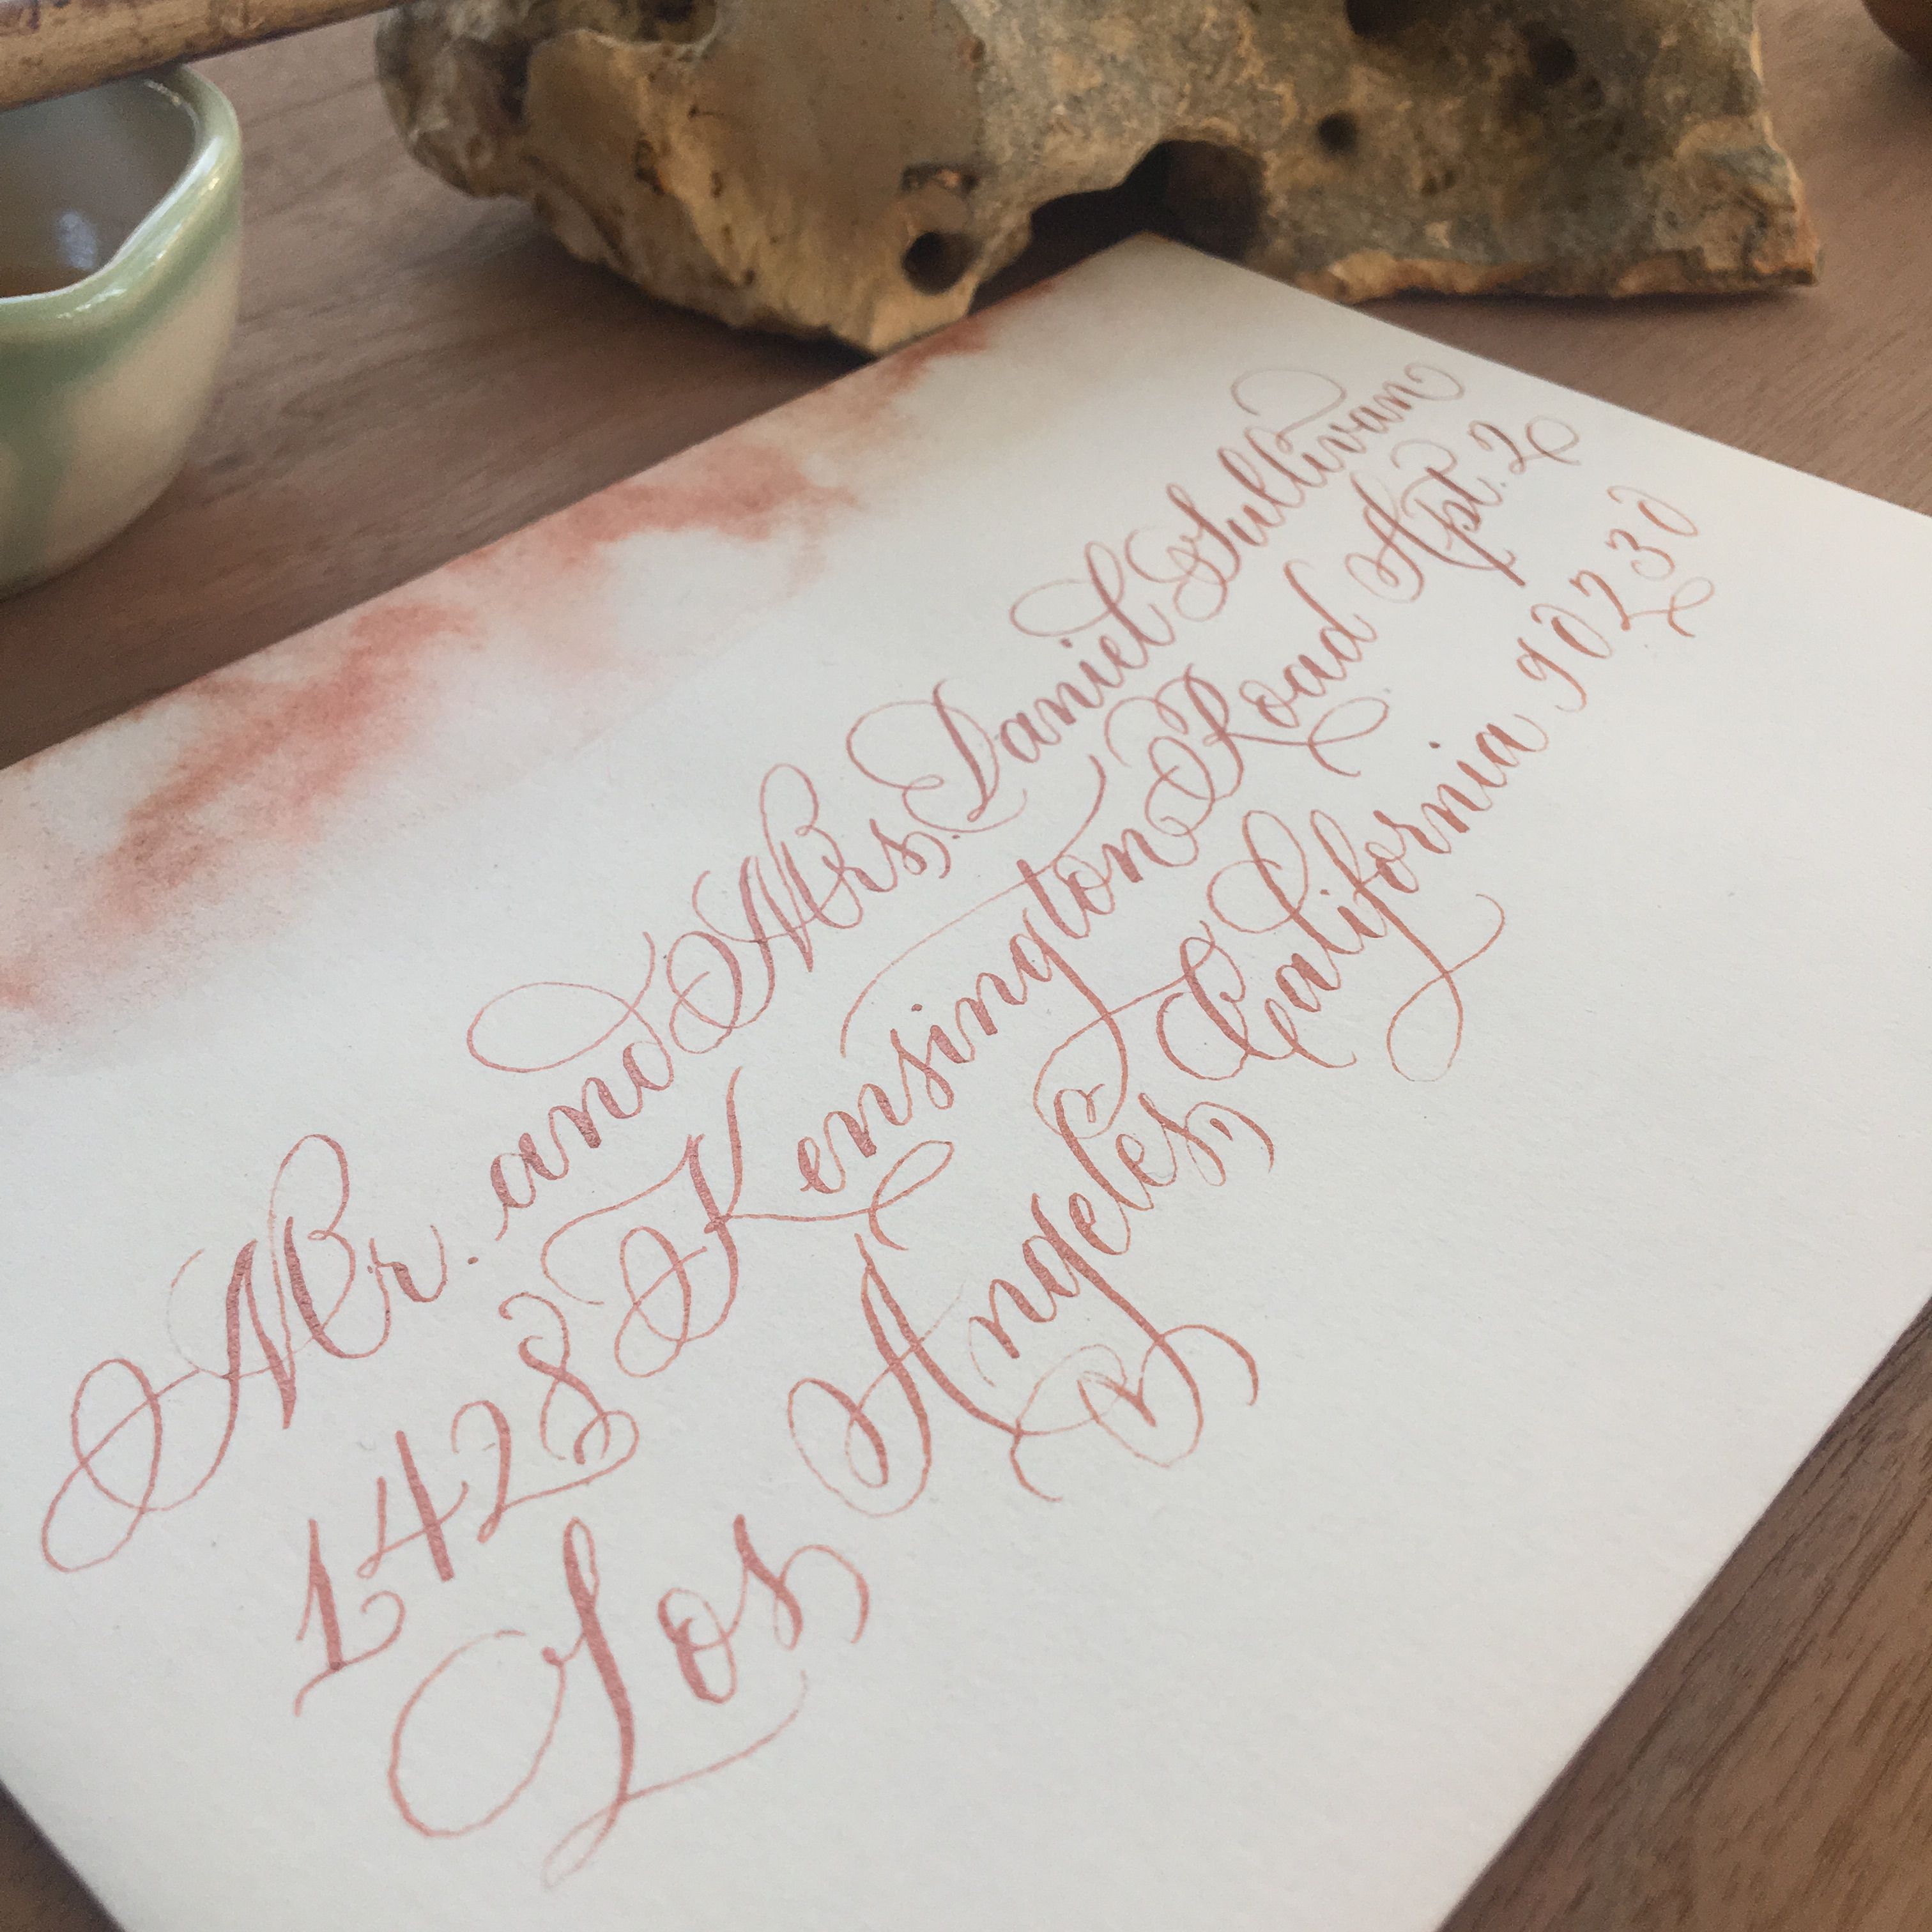 Mr. and Mrs. Daniel Sullivan
1428 Kensington Road Apt. 2
Los Angeles, California 90230